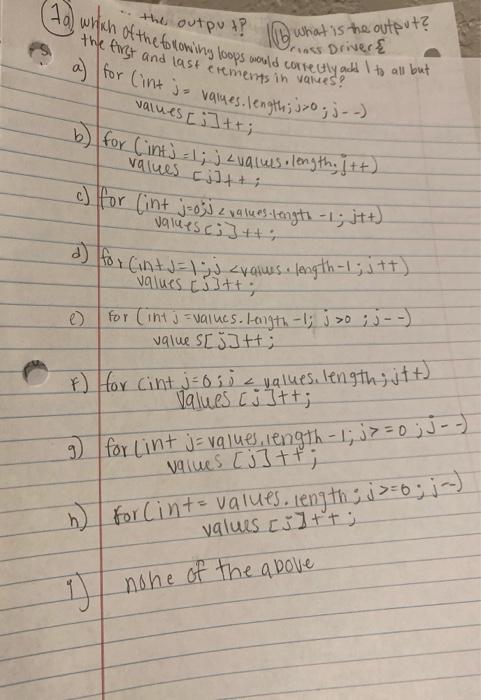 the output?
1a) which of the following loops would correctly add 1 to all but
the first and last elements in values?
1b) what is the output?
class Driver {
a) for (int j = values.length; j>0; j--)
values[j]++;
b) for (int j =1; j < values.length; j++)
values [j]++;
c) for (int j=0; j < values.length -1; j++)
values[j]++;
d) for (int j=1; j < values.length-1; j++)
values [j]++;
e) for (int j = values.length -1; j >0 ; j--)
values[j]++;
f) for (int j=0; j < values.length; j++)
values [j]++;
g) for (int j= values.length -1; j>=0 ; j--)
values [j]++;
h) for (int = values.length ; j>=0; j--)
values [j]++;
i) none of the above